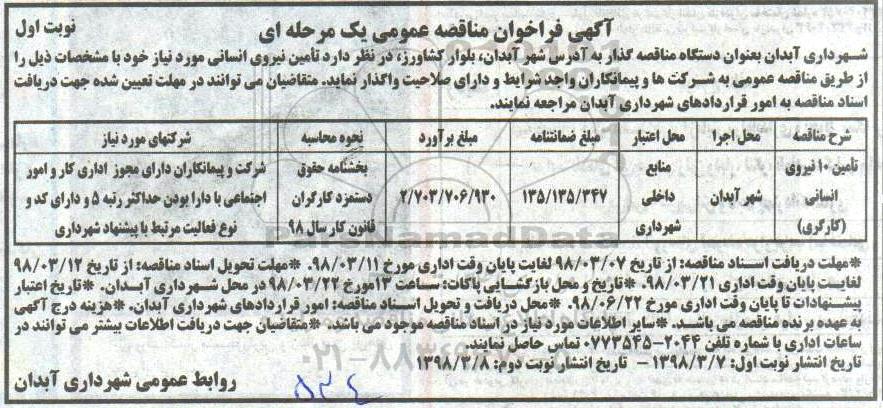 آگهی فراخوان مناقصه عمومی یک مرحله ای
نوبت اول
شهرداری آبدان بعنوان دستگاه مناقصه گذار به آدرس شهر آبدان، بلوار کشاورز، در نظر دارد تأمین نیروی انسانی مورد نیاز خود با مشخصات ذیل را
از طریق مناقصه عمومی به شرکت ها و پیمانکاران واجد شرایط و دارای صلاحیت واگذار نماید. متقاضیان می توانند در مهلت تعیین شده جهت دریافت
اسناد مناقصه به امور قراردادهای شهرداری آبدان مراجعه نمایند.
شرح مناقصه محل اجرا محل اعتبار مبلغ ضمانتنامه مبلغ برآورد نحوه محاسبه شرکتهای مورد نیاز
تأمین ۱۰ نیروی منابع بخشنامه حقوق شرکت و پیمانکاران دارای مجوز اداری کار و امور
انسانی شهر آبدان داخلی ۱۳۵/۱۳۵/۳۴۷ ۲/۷۰۳/۷۰۶/۹۳۰ دستمزد کارگران اجتماعی با دارا بودن حداکثر رتبه ۵ و دارای کد و
(کارگری) شهرداری قانون کار سال ۹۸ نوع فعالیت مرتبط با پیشنهاد شهرداری
*مهلت دریافت اسناد مناقصه: از تاریخ ۹۸/۰۳/۰۷ لغایت پایان وقت اداری مورخ ۹۸/۰۳/۱۱. *مهلت تحویل اسناد مناقصه: از تاریخ ۹۸/۰۳/۱۲
لغایت پایان وقت اداری ۹۸/۰۳/۲۱. *تاریخ و محل بازگشایی پاکات: ساعت ۱۳ مورخ ۹۸/۰۳/۲۲ در محل شهرداری آبدان. *تاریخ اعتبار
پیشنهادات تا پایان وقت اداری مورخ ۹۸/۰۶/۲۲. *محل دریافت و تحویل اسناد مناقصه: امور قراردادهای شهرداری آبدان. *هزینه درج آگهی
به عهده برنده مناقصه می باشد. *سایر اطلاعات مورد نیاز در اسناد مناقصه موجود می باشد. *متقاضیان جهت دریافت اطلاعات بیشتر می توانند در
ساعات اداری با شماره تلفن ۲۰۴۴-۰۷۷۳۵۴۵ تماس حاصل نمایند.
تاریخ انتشار نوبت اول: ۱۳۹۸/۳/۷ - تاریخ انتشار نوبت دوم: ۱۳۹۸/۳/۸
روابط عمومی شهرداری آبدان
ParsNamadData